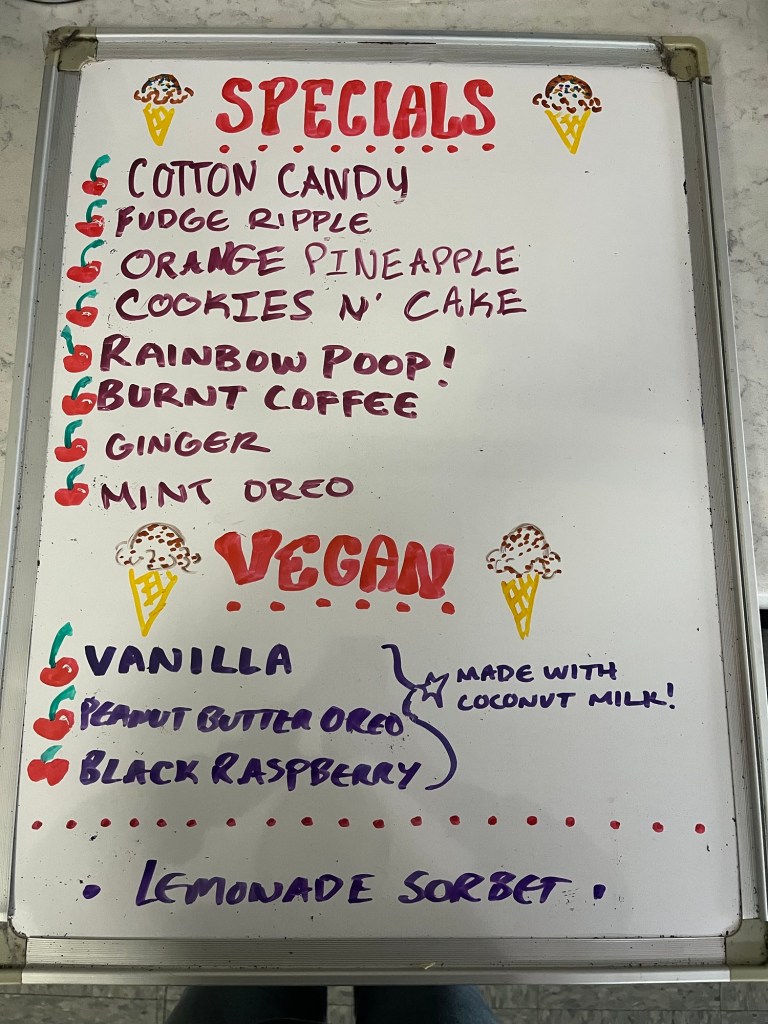 SPECIALS
COTTON CANDY
FUDGE RIPPLE
ORANGE PINEAPPLE
COOKIES N' CAKE
RAINBOW POOP!
BURNT COFFEE
GINGER
MINT OREO
VEGAN
VANILLA
PEANUT BUTTER OREO
BLACK RASPBERRY
MADE WITH
COCONUT MILK!
• LEMONADE SORBET •